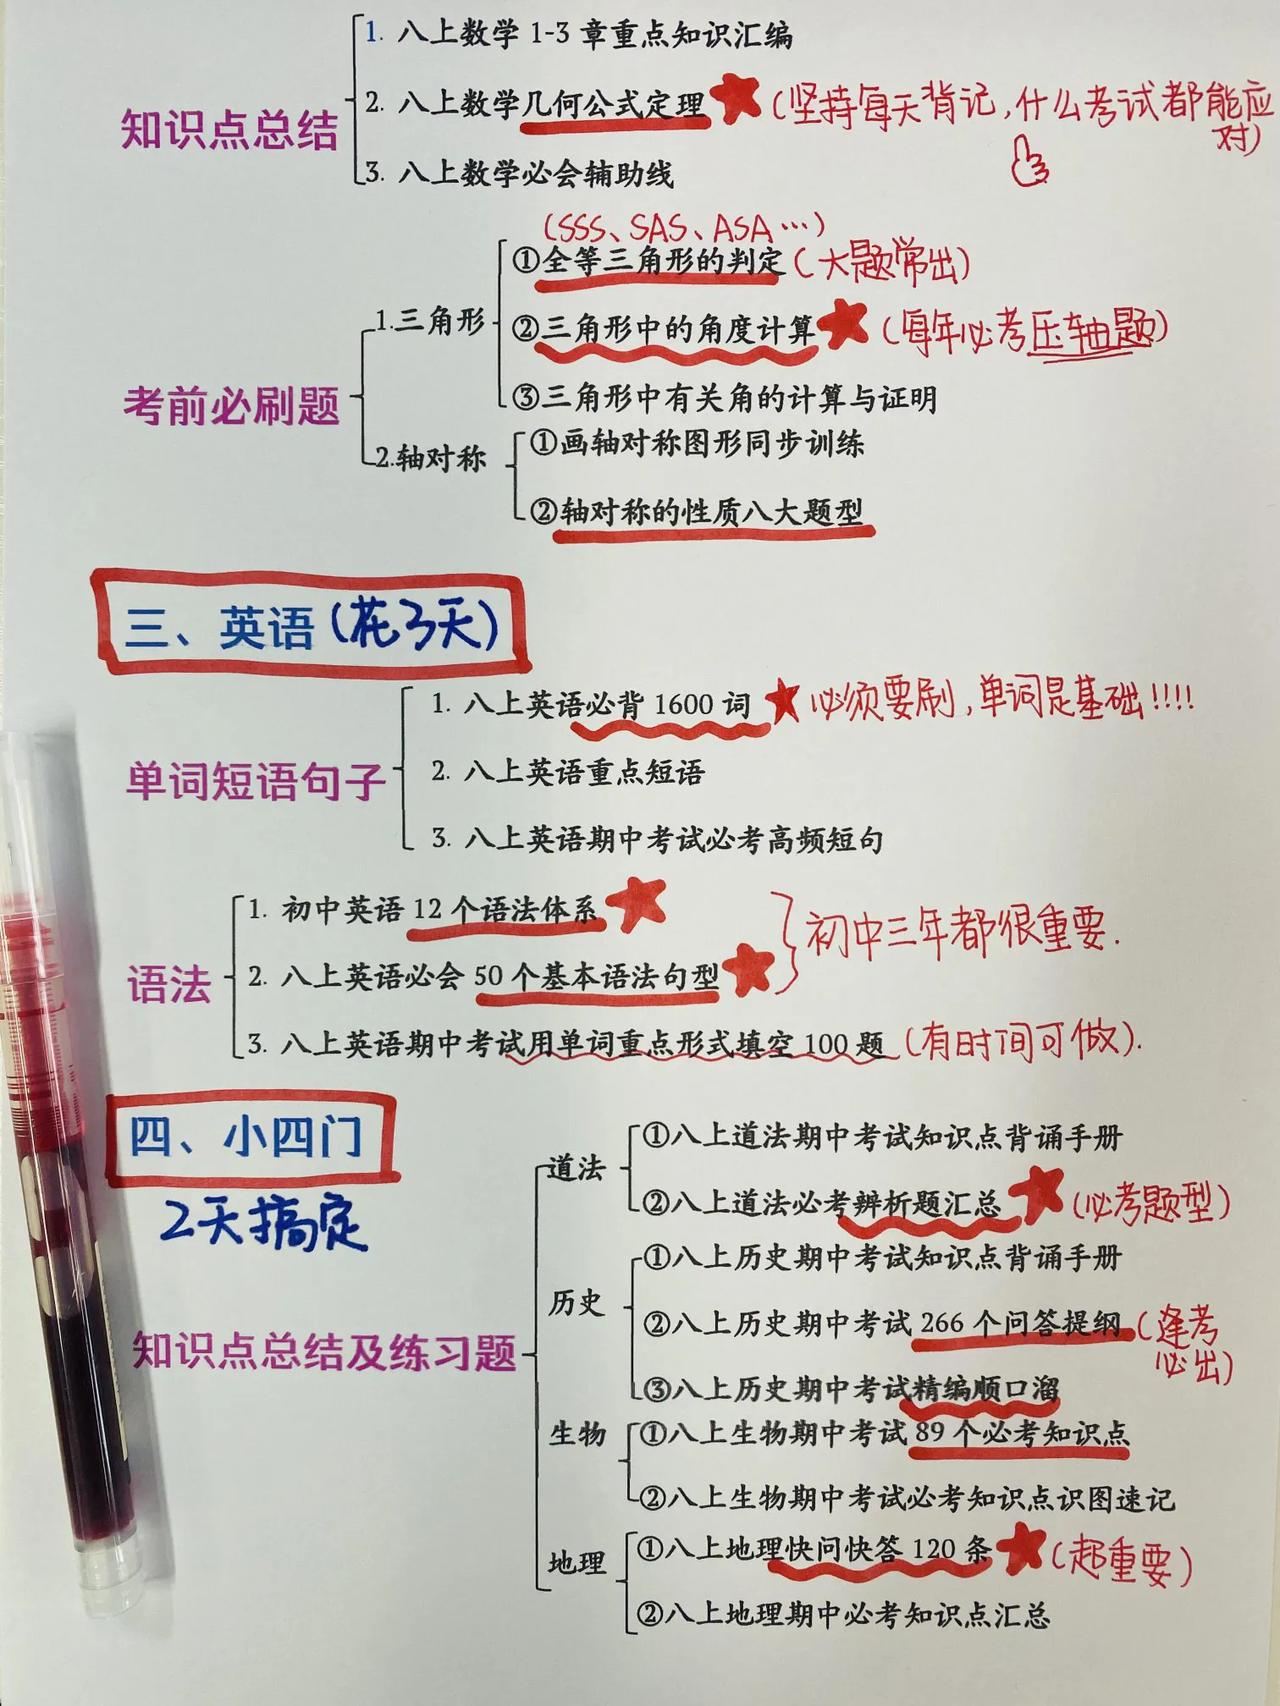 知识点总结
1. 八上数学 1-3 章重点知识汇编
2. 八上数学几何公式定理 (坚持每天背记,什么考试都能应对)
3. 八上数学必会辅助线
考前必刷题
1.三角形
(SSS、SAS、ASA…)
①全等三角形的判定(大题常出)
②三角形中的角度计算 (每年必考压轴题)
③三角形中有关角的计算与证明
2.轴对称
①画轴对称图形同步训练
②轴对称的性质八大题型
三、英语(花3天)
单词短语句子
1. 八上英语必背 1600 词 必须要刷,单词是基础!!!!
2. 八上英语重点短语
3. 八上英语期中考试必考高频短句
语法
1. 初中英语 12 个语法体系
2. 八上英语必会 50 个基本语法句型
初中三年都很重要.
3. 八上英语期中考试用单词重点形式填空 100 题(有时间可做).
四、小四门
2天搞定
知识点总结及练习题
道法
①八上道法期中考试知识点背诵手册
②八上道法必考辨析题汇总 (必考题型)
历史
①八上历史期中考试知识点背诵手册
②八上历史期中考试 266 个问答提纲 (逢考必出)
③八上历史期中考试精编顺口溜
生物
①八上生物期中考试 89 个必考知识点
②八上生物期中考试必考知识点识图速记
地理
①八上地理快问快答 120 条 (超重要)
②八上地理期中必考知识点汇总